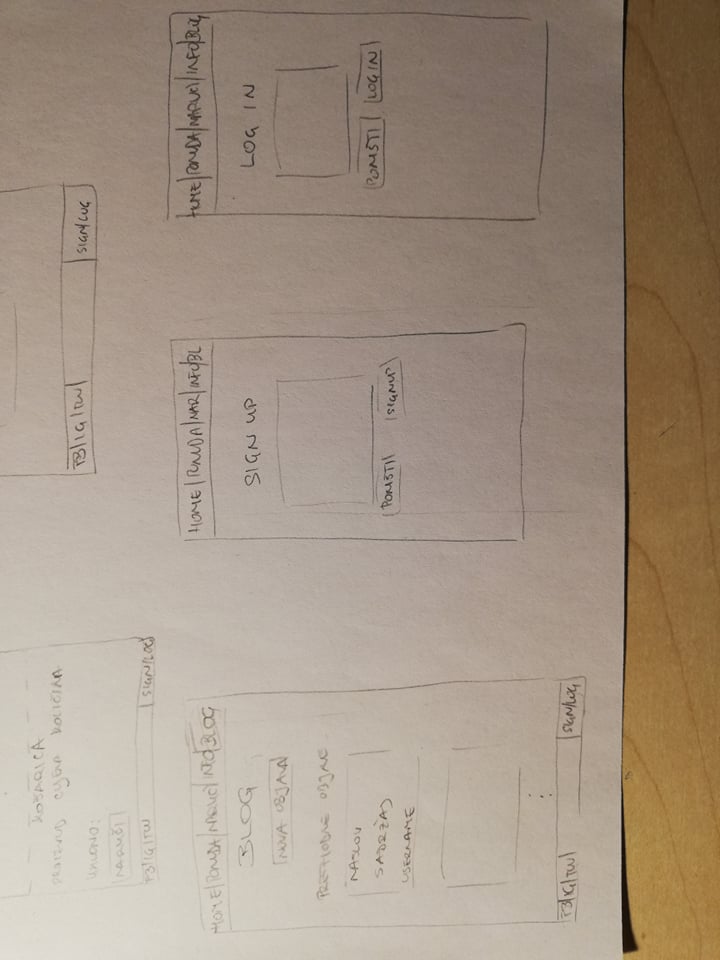 KOŠARICA
PROIZVOD CIJENA KOLIČINA
UKUPNO:
NARUČI
FB/IG/TW SIGN/LOG
FB/IG/TW SIGN/LOG
HOME PONUDA NARUČI INFO BLOG
BLOG
NOVA OBJAVA
PRETHODNE OBJAVE
NASLOV
SADRŽAJ
USERNAME
FB/IG/TW SIGN/LOG
HOME PONUDA NAR INFO BL
SIGN UP
PONIŠTI SIGNUP
HOME PONUDA NARUČI INFO BLOG
LOG IN
PONIŠTI LOGIN